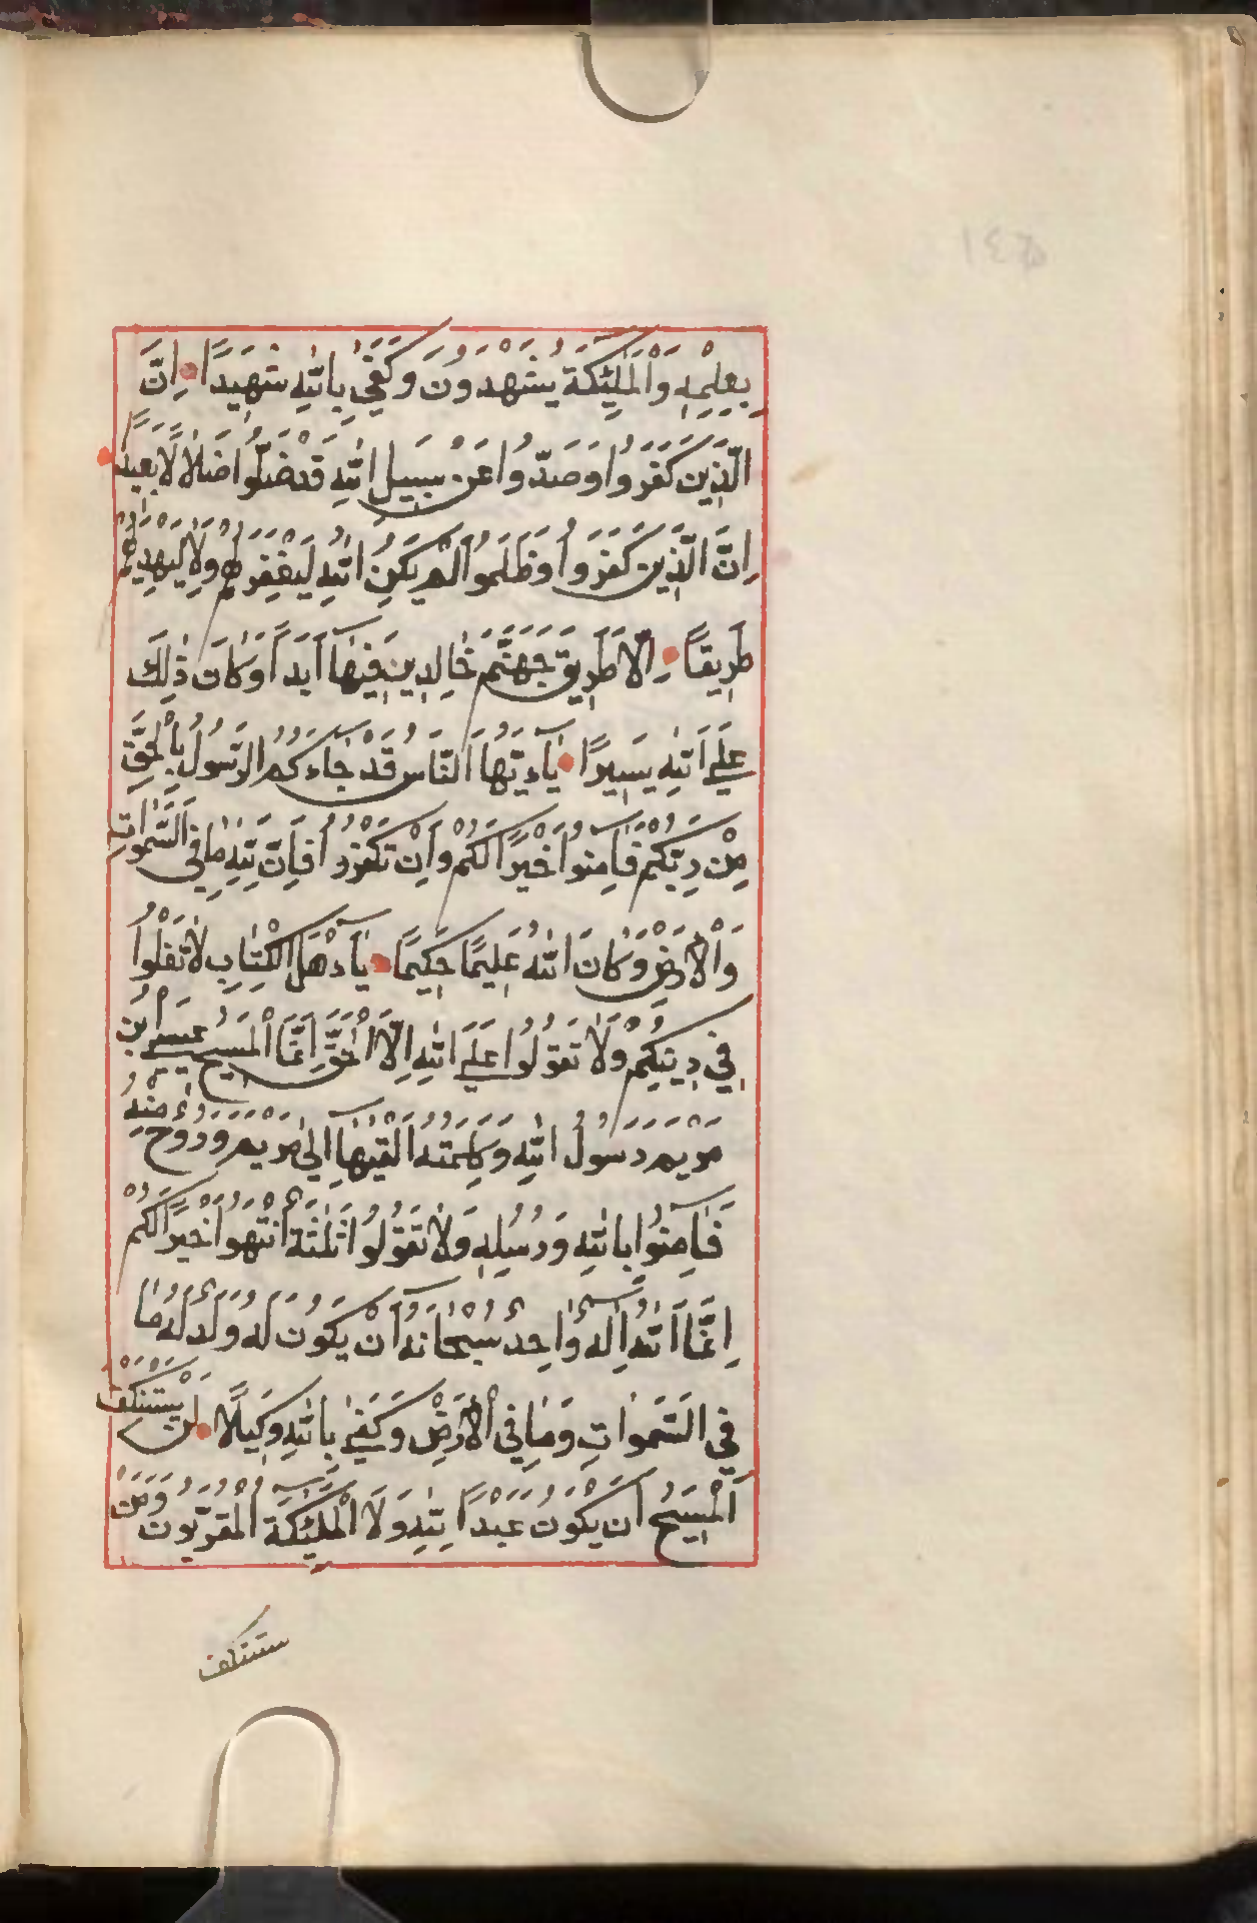 بِعِلْمِهِ وَالْمَلٰئِكَةُ يَشْهَدُونَ وَكَفٰى بِاللّٰهِ شَهِيدًا اِنَّ
الَّذِينَ كَفَرُوا وَصَدُّوا عَنْ سَبِيلِ اللّٰهِ قَدْ ضَلُّوا ضَلَالًا بَعِيدًا
اِنَّ الَّذِينَ كَفَرُوا وَظَلَمُوا لَمْ يَكُنِ اللّٰهُ لِيَغْفِرَ لَهُمْ وَلَا لِيَهْدِيَهُمْ
طَرِيقًا اِلَّا طَرِيقَ جَهَنَّمَ خَالِدِينَ فِيهَا اَبَدًا وَكَانَ ذٰلِكَ
عَلَى اللّٰهِ يَسِيرًا يَاءَيُّهَا النَّاسُ قَدْ جَاءَكُمُ الرَّسُولُ بِالْحَقِّ
مِنْ رَبِّكُمْ فَاٰمِنُوا خَيْرًا لَكُمْ وَاِنْ تَكْفُرُوا فَاِنَّ لِلّٰهِ مَا فِي السَّمٰوَاتِ
وَالْاَرْضِ وَكَانَ اللّٰهُ عَلِيمًا حَكِيمًا يَاءَهْلَ الْكِتَابِ لَا تَغْلُوا
فِي دِينِكُمْ وَلَا تَقُولُوا عَلَى اللّٰهِ اِلَّا الْحَقَّ اِنَّمَا الْمَسِيحُ عِيسَى ابْنُ
مَرْيَمَ رَسُولُ اللّٰهِ وَكَلِمَتُهُ اَلْقٰيهَا اِلٰى مَرْيَمَ وَرُوحٌ مِنْهُ
فَاٰمِنُوا بِاللّٰهِ وَرُسُلِهِ وَلَا تَقُولُوا ثَلٰثَةٌ انْتَهُوا خَيْرًا لَكُمْ
اِنَّمَا اللّٰهُ اِلٰهٌ وَاحِدٌ سُبْحَانَهُ اَنْ يَكُونَ لَهُ وَلَدٌ لَهُ مَا
فِي السَّمٰوَاتِ وَمَا فِي الْاَرْضِ وَكَفٰى بِاللّٰهِ وَكِيلًا لَنْ يَسْتَنْكِفَ
الْمَسِيحُ اَنْ يَكُونَ عَبْدًا لِلّٰهِ وَلَا الْمَلٰئِكَةُ الْمُقَرَّبُونَ وَمَنْ
يستنكف